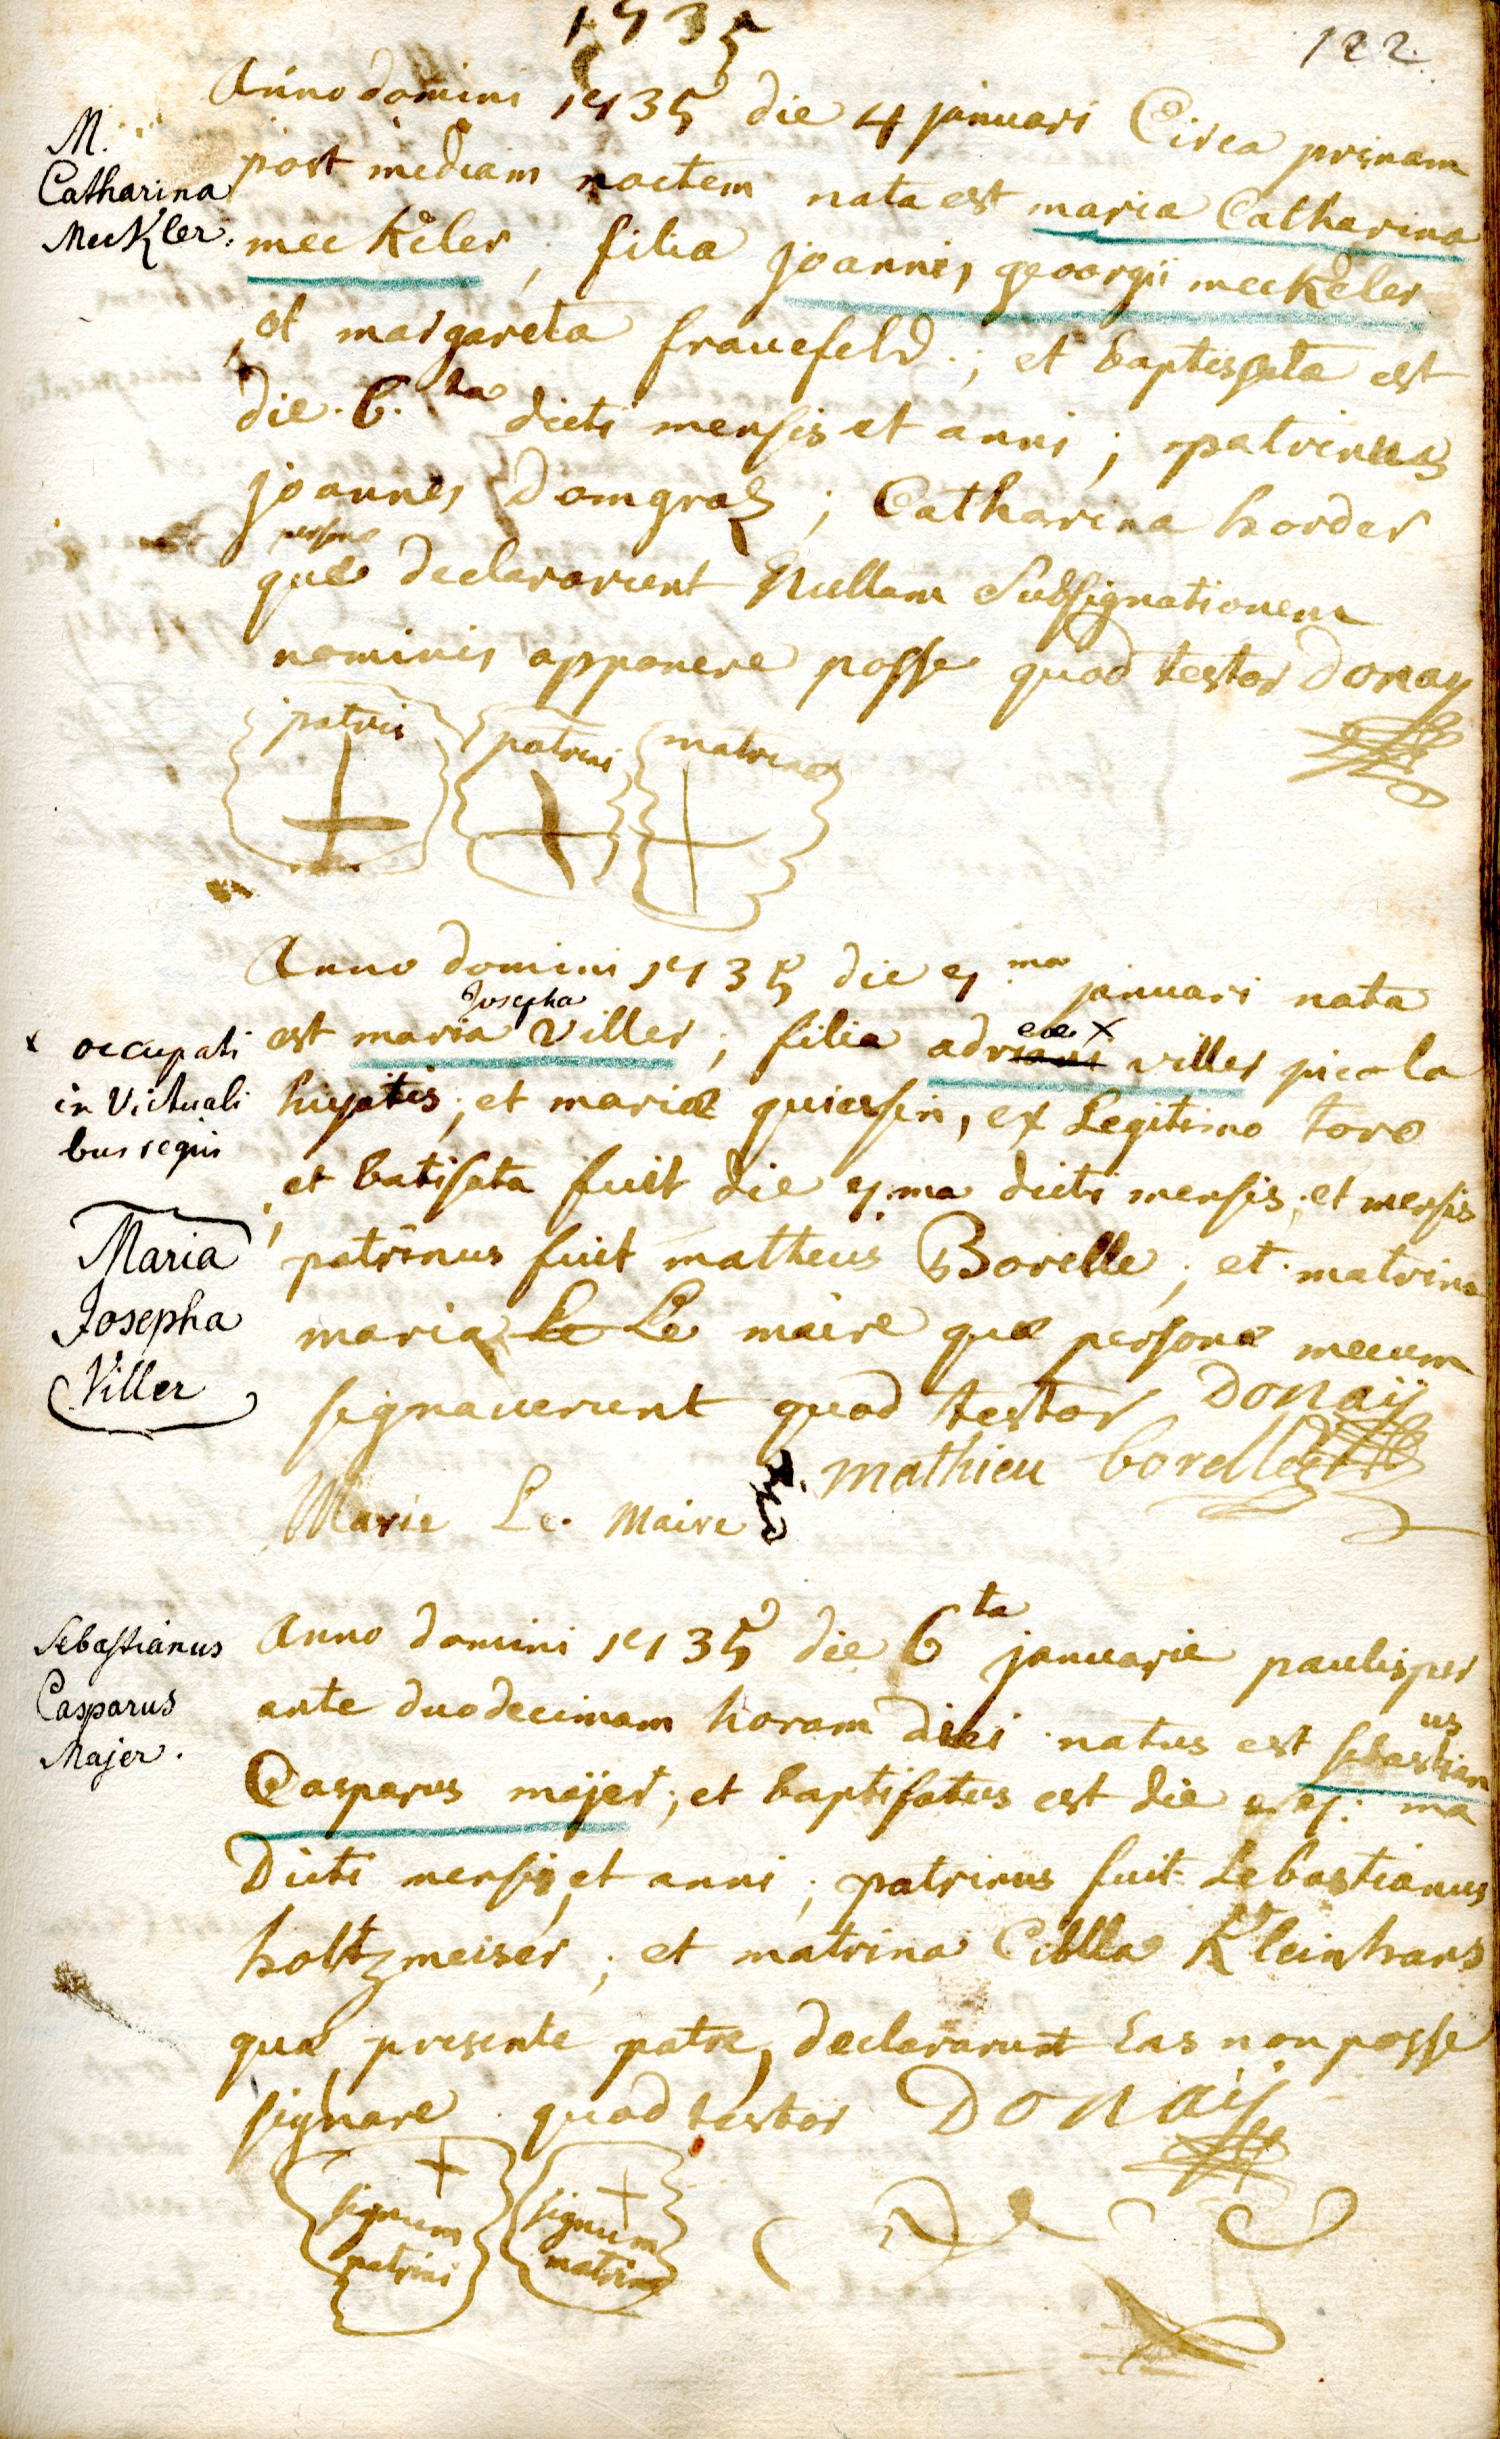 1735
122.
Anno domini 1735 die 4 januari Circa primam
post mediam noctem nata est maria Catharina
meckeler, filia joannis georgii meckeler
et margareta frauefeld; et baptisata est
die 6.ta dicti mensis et anni; patrinus
joannes Domgrab; Catharina horder
personæ
quæ declararunt Nullam Subsignationem
nominis apponere posse quod testor Donay
M.
Catharina
Meckler.
patris
patrini
matrina
Anno domini 1735 die 7.ma januari nata
Josepha
est maria Viller; filia adriani viller
eæ x
et mariæ, ex Legitimo toro
et batisata fuit die 7.ma dicti mensis, et mensis
patrinus fuit matheus Borelle; et matrina
maria Le Le maire quæ personæ mecum
signaverunt quod testor Donaÿ
mathieu borelle
Marie Le. Maire
x occupati
in Victuali
bus regiis
Maria
Josepha
Viller
Anno domini 1735 die 6ta januarie paulisper
ante duodecimam horam diei natus est sebastianus
Casparus mejer; et baptisatus est die 7: ma
Dicti mensis et anni; patrinus fuit Sebastianus
holtzmeiser; et matrina Cibilla Kleinhans
qua presente patre, declararunt Eas non posse
signare quod testor Donaÿ
Sebastianus
Casparus
Majer.
signum
patrini
signum
matrina